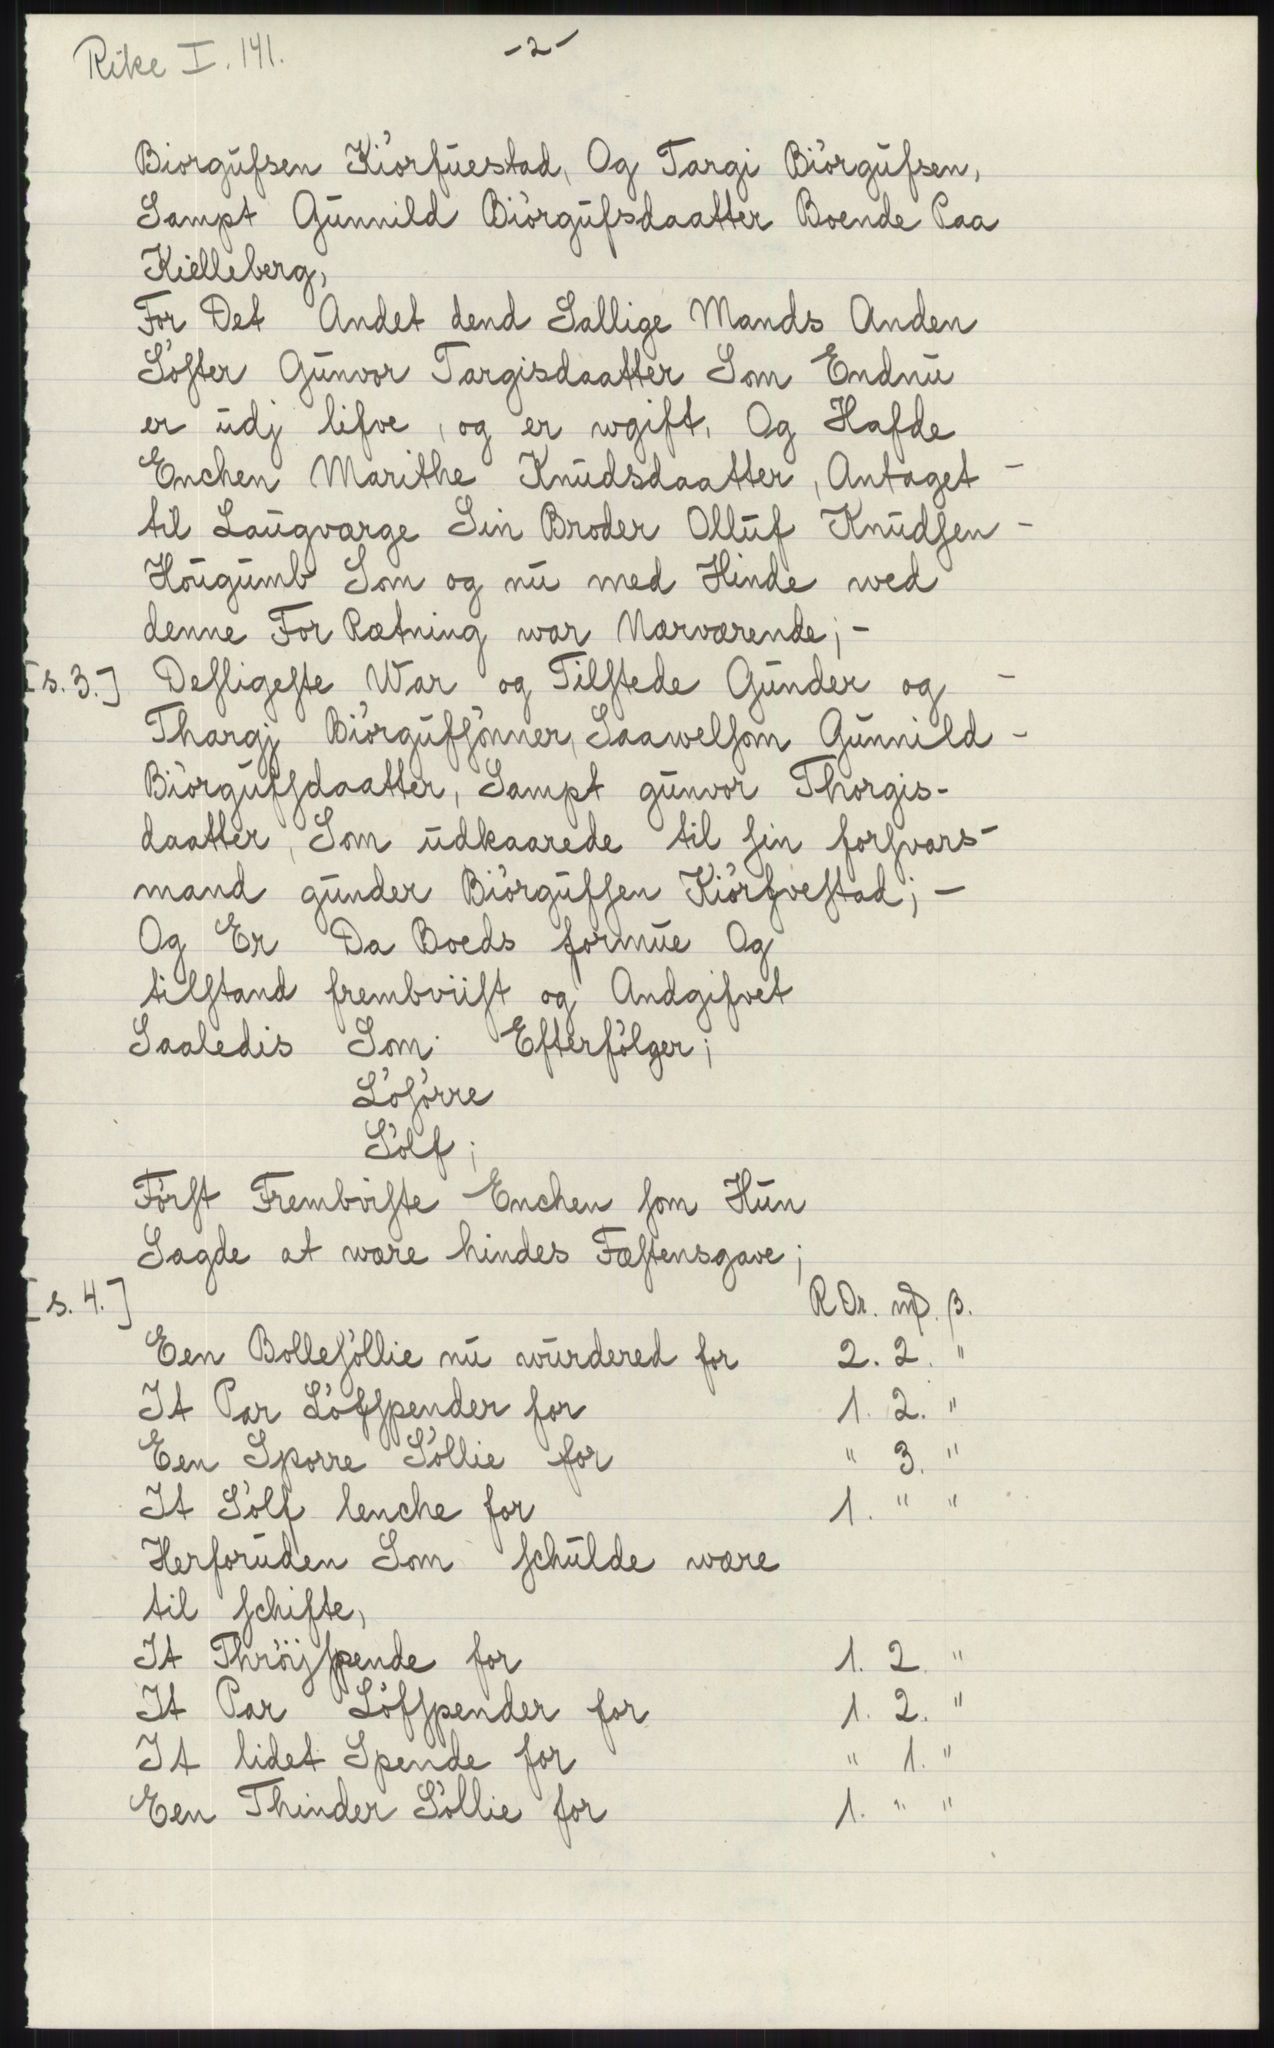 Rike I. 141.
-2-
Biorgufsen Kiörfuestad, Og Targi Biörgufsen,
Sampt Gunnild Biörgufsdaatter Boende Paa
Kielleberg,
For Det Andet dend Sallige Mands Anden
Söster Gunvor Targisdaatter Som Endnu
er udj lifve, og er wgift, Og Hafde
Enchen Marithe Knudsdaatter, Antaget -
til Laugværge Sin Broder Olluf Knudsen -
Hougumb Som og nu med Hinde wed
denne For Rætning war Nærværende; -
[s. 3.] Desligeste War og Tilstede Gunder og -
Thargj Biörgufsönner, Saawelsom Gunnild -
Biörgufsdaatter, Sampt gunvor Thorgis-
daatter, Som udkaarede til sin forsvars-
mand gunder Biörgufsen Kiörfvestad; -
Og Er Da Boeds formue Og
tilstand frembviist og Andgifvet
Saaledis Som Efterfölger;
Lösörre
Sölf;
Först Frembviste Enchen som Hun
Sagde at være hindes Fæstensgave;
[s. 4.] R Dr. mß. β.
Een Bollesöllie nu wurdered for 2. 2. "
It Par Löfspender for 1. 2. "
Een Sporre Söllie for " 3. "
It Sölf lenche for 1. " "
Herforuden Som schulde wære
til schifte,
It Thröijspende for 1. 2. "
It Par Löfspender for 1. 2. "
It lidet Spende for " 1. "
Een Thinder Söllie for 1. " "